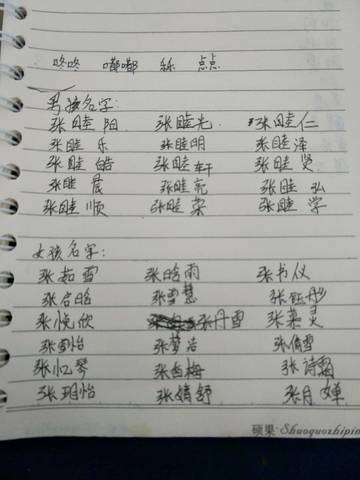 咚咚 嘟嘟 点点
男孩名字:
张睦阳 张睦光 张睦仁
张睦乐 张睦明 张睦泽
张睦皓 张睦轩 张睦贤
张睦晨 张睦亮 张睦弘
张睦顺 张睦荣 张睦学
女孩名字:
张茹雪 张晗雨 张书仪
张启晗 张雪慧 张钰彤
张悦欣 张丹雪
张雪怡 张梦洁 张倩雪
张忆琴 张雪梅 张诗雨
张玥怡 张婧舒 张月婵
硕果·Shuoguozhipin